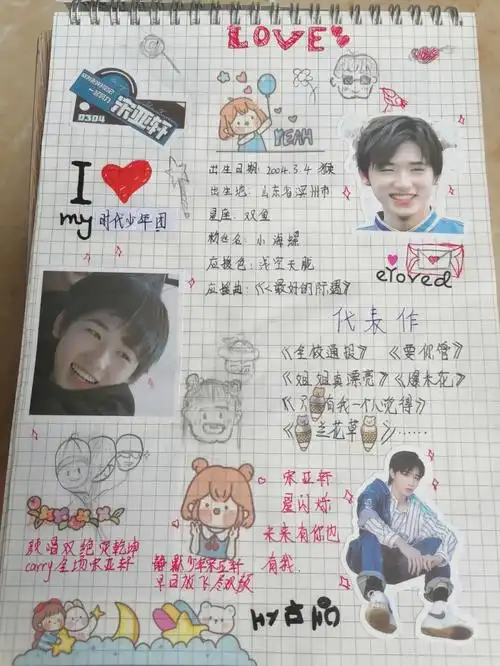 LOVE
宋亚轩
0304
YEAH
I
my 时代少年团
出生日期: 2004.3.4
出生地: 山东省滨州市
星座: 双鱼
粉丝名: 小海螺
应援色: 浅空天
应援曲:《最好的际遇》
loved
代表作
《全校通报》 《要你管》
《姐姐真漂亮》《爆米花》
《只有我一个人觉得》
《兰花草》······
宋亚轩
星闪烁
未来有你也
有我.
歌唱双绝定乾坤
carry全场宋亚轩
少年宋亚轩
早日放飞